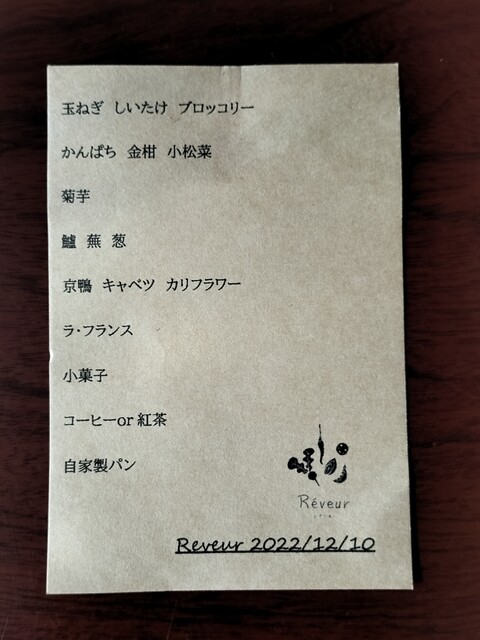 玉ねぎ しいたけ ブロッコリー
かんぱち 金柑 小松菜
菊芋
鱸 蕪 葱
京鴨 キャベツ カリフラワー
ラ・フランス
小菓子
コーヒーor紅茶
自家製パン
Réveur
Reveur 2022/12/10